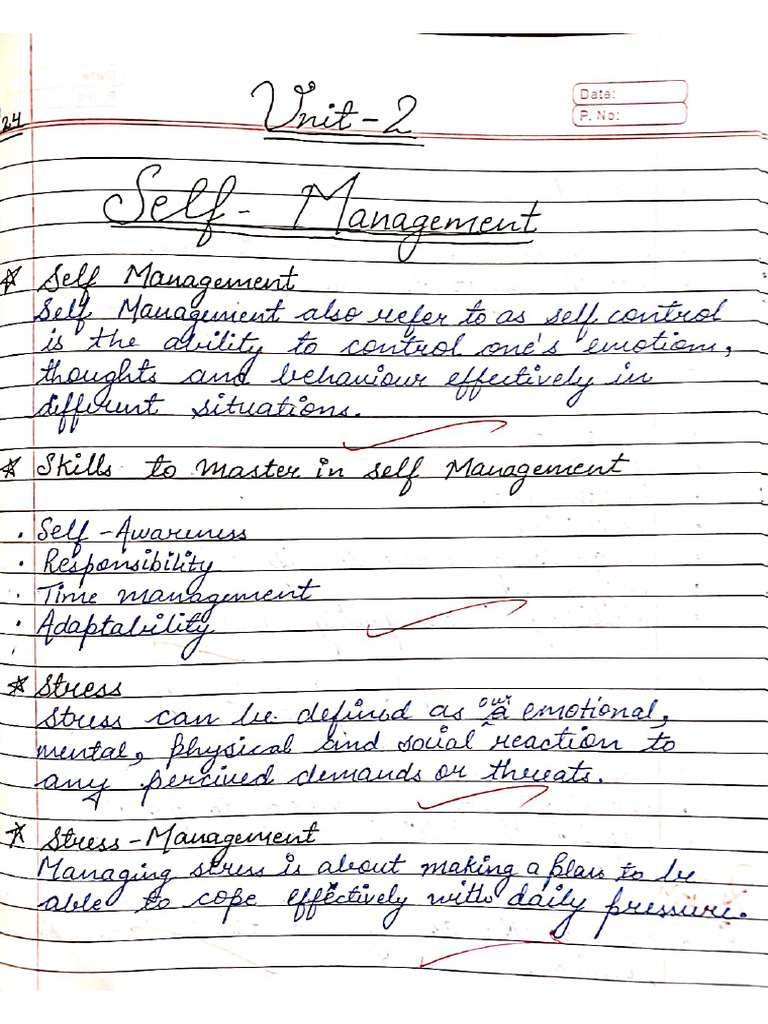 Date:
P. No:
24
Unit-2
Self- Management
☆ Self Management
Self Management also refer to as self control
is the ability to control one's emotions,
thoughts and behaviour effectively in
different situations.
☆ Skills to master in self Management
• Self-Awareness
• Responsibility
• Time management
• Adaptability
☆ Stress
Stress can be defined as our emotional,
mental, physical and social reaction to
any percived demands or threats.
☆ Stress-Management
Managing stress is about making a plan to be
able to cope effectively with daily pressure.